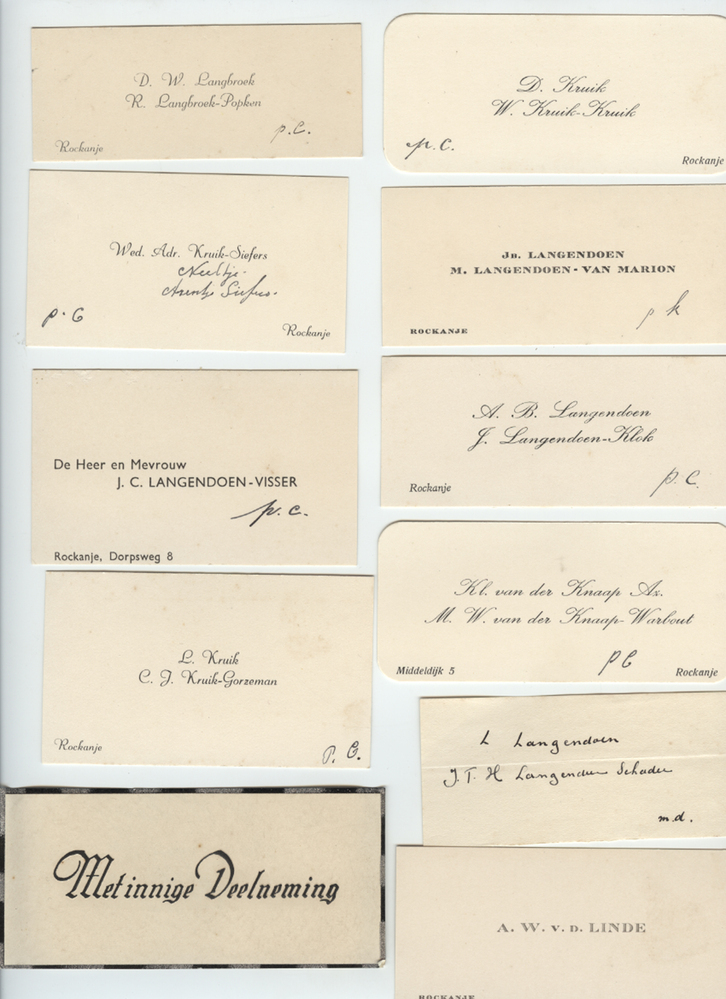 D. W. Langbroek
R. Langbroek-Popken
p.c.
Rockanje
D. Kruik
W. Kruik-Kruik
p.c.
Rockanje
Wed. Adr. Kruik-Siefers
Neeltje.
Arentje Siefers.
p.c
Rockanje
Jn. LANGENDOEN
M. LANGENDOEN - VAN MARION
p k
ROCKANJE
De Heer en Mevrouw
J. C. LANGENDOEN-VISSER
p.c.
Rockanje, Dorpsweg 8
A. B. Langendoen
J. Langendoen-Klok
p.c.
Rockanje
L. Kruik
C. J. Kruik-Gorzeman
Rockanje
P.C.
Kl. van der Knaap Az.
M. W. van der Knaap-Warbout
pc
Middeldijk 5
Rockanje
L Langendoen
J. T. H Langendoen Schader
m.d.
Met innige Deelneming
A. W. v. d. LINDE
ROCKANJE